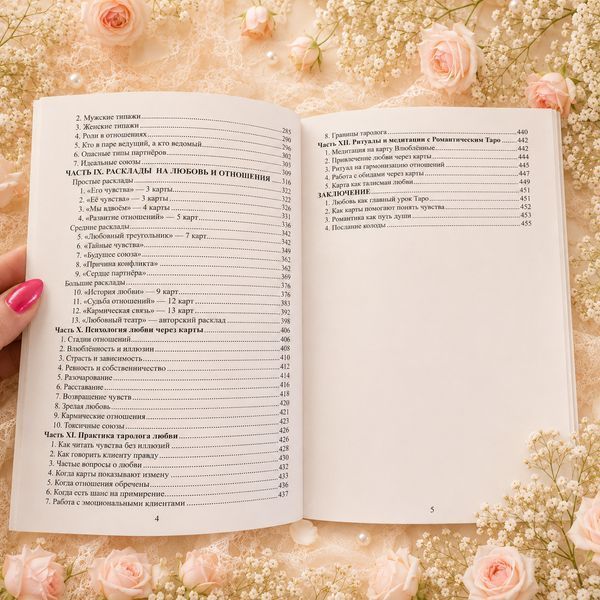 2. Мужские типажи 285
3. Женские типажи 290
4. Роли в отношениях 296
5. Кто в паре ведущий, а кто ведомый 302
6. Опасные типы партнёров 303
7. Идеальные союзы 309
ЧАСТЬ IX. РАСКЛАДЫ НА ЛЮБОВЬ И ОТНОШЕНИЯ 316
Простые расклады 322
1. «Его чувства» — 3 карты 322
2. «Её чувства» — 3 карты 326
3. «Мы вдвоём» — 4 карты 331
4. «Развитие отношений» — 5 карт 336
Средние расклады 342
5. «Любовный треугольник» — 7 карт 342
6. «Тайные чувства» 349
7. «Будущее союза» 362
8. «Причина конфликта» 362
9. «Сердце партнёра» 369
Большие расклады 376
10. «История любви» — 9 карт 376
11. «Судьба отношений» — 12 карт 383
12. «Кармическая связь» — 13 карт 392
13. «Любовный театр» — авторский расклад 398
Часть X. Психология любви через карты 406
1. Стадии отношений 406
2. Влюблённость и иллюзии 408
3. Страсть и зависимость 410
4. Ревность и собственничество 412
5. Разочарование 414
6. Расставание 416
7. Возвращение чувств 418
8. Зрелая любовь 420
9. Кармические отношения 421
10. Токсичные союзы 423
Часть XI. Практика таролога любви 426
1. Как читать чувства без иллюзий 426
2. Как говорить клиенту правду 428
3. Частые вопросы о любви 430
4. Когда карты показывают измену 432
5. Когда отношения обречены 433
6. Когда есть шанс на примирение 436
7. Работа с эмоциональными клиентами 437
4
8. Границы таролога 440
Часть XII. Ритуалы и медитации с Романтическим Таро 442
1. Медитация на карту Влюблённые 442
2. Привлечение любви через карты 444
3. Ритуал на гармонизацию отношений 445
4. Работа с обидами через карты 447
5. Карта как талисман любви 449
ЗАКЛЮЧЕНИЕ 451
1. Любовь как главный урок Таро 451
2. Как карты помогают понять чувства 452
3. Романтика как путь души 453
4. Послание колоды 455
5